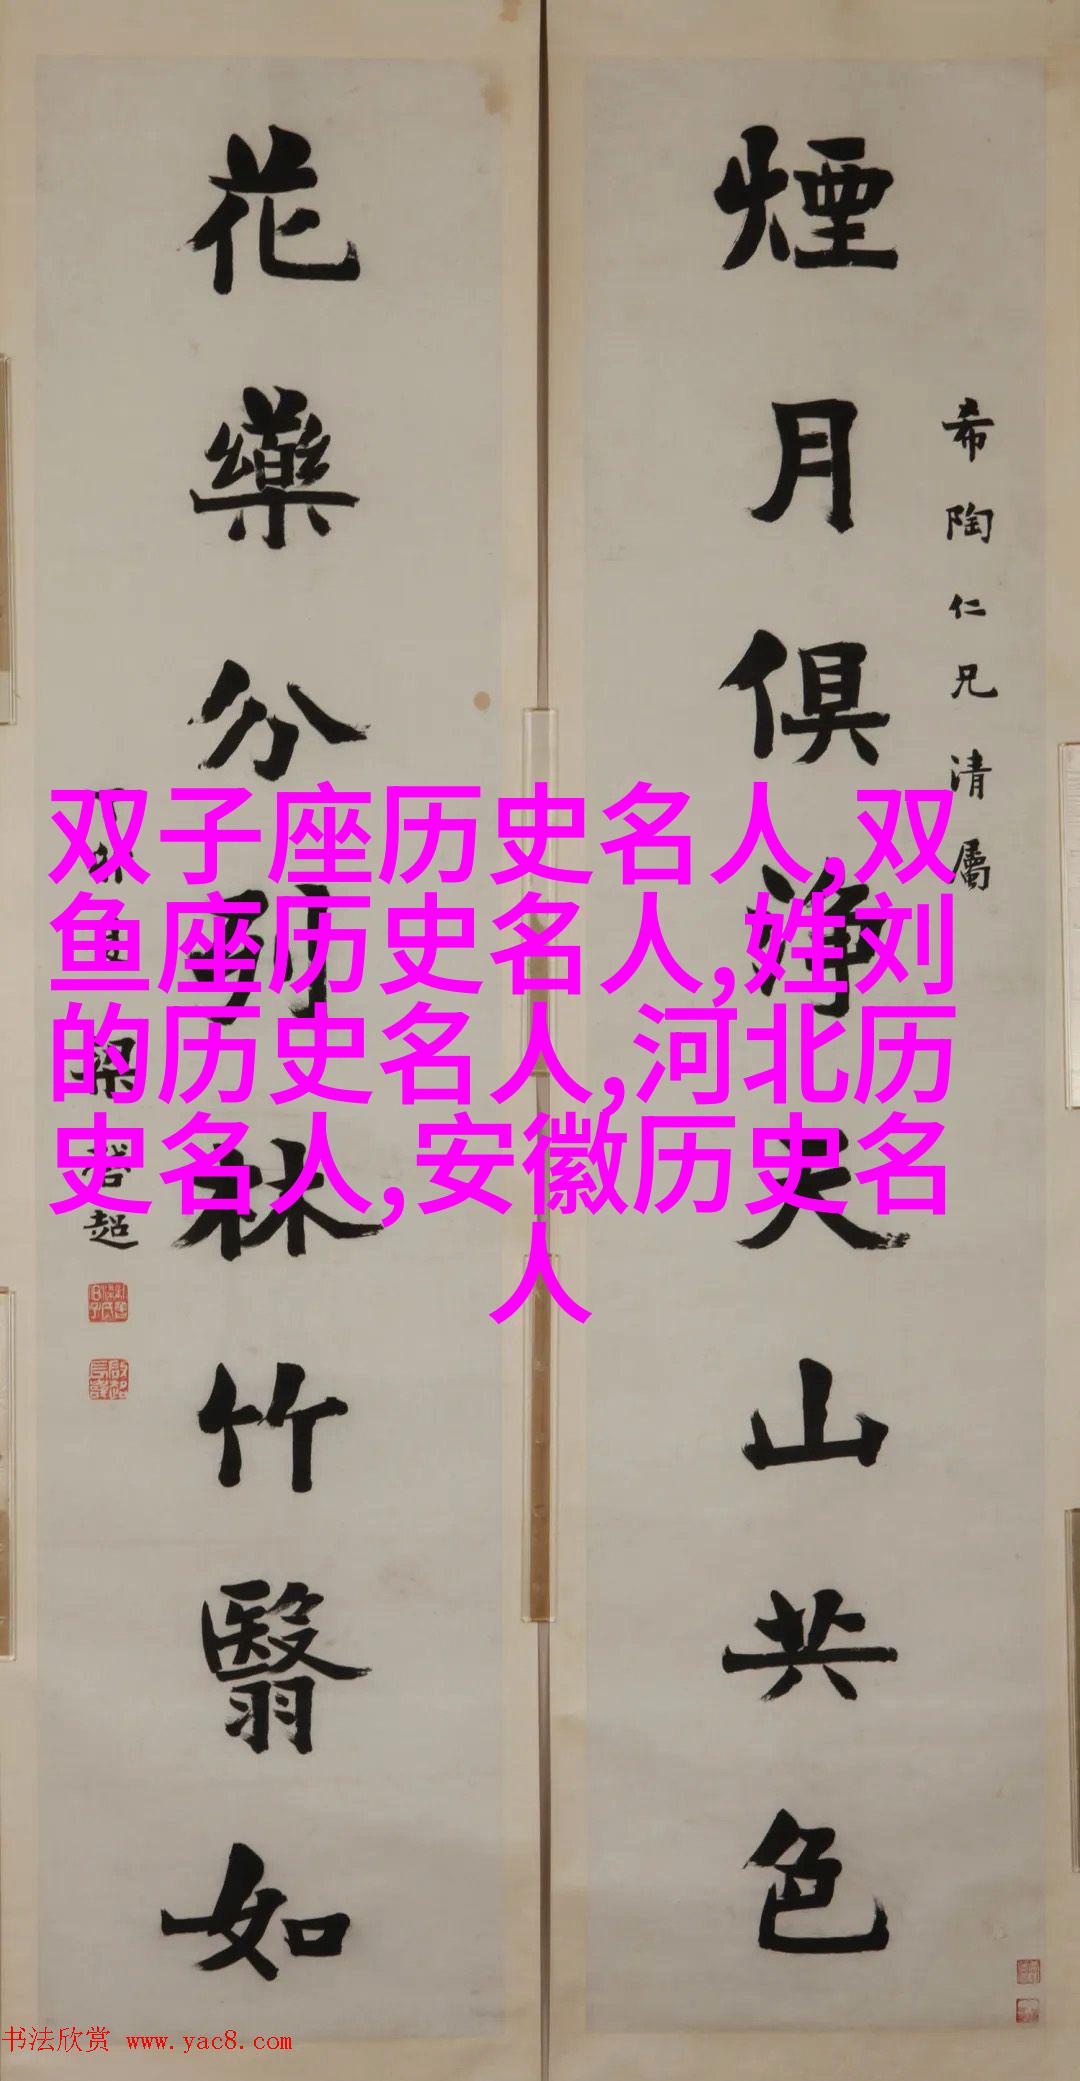 煙月俱淨天山共色
希陶仁兄清屬
花藥分列林竹翳如
梁啓超
双子座历史名人,双
鱼座历史名人,姓刘
的历史名人,河北历
史名人,安徽历史名
人
书法欣赏 www.yac8.com